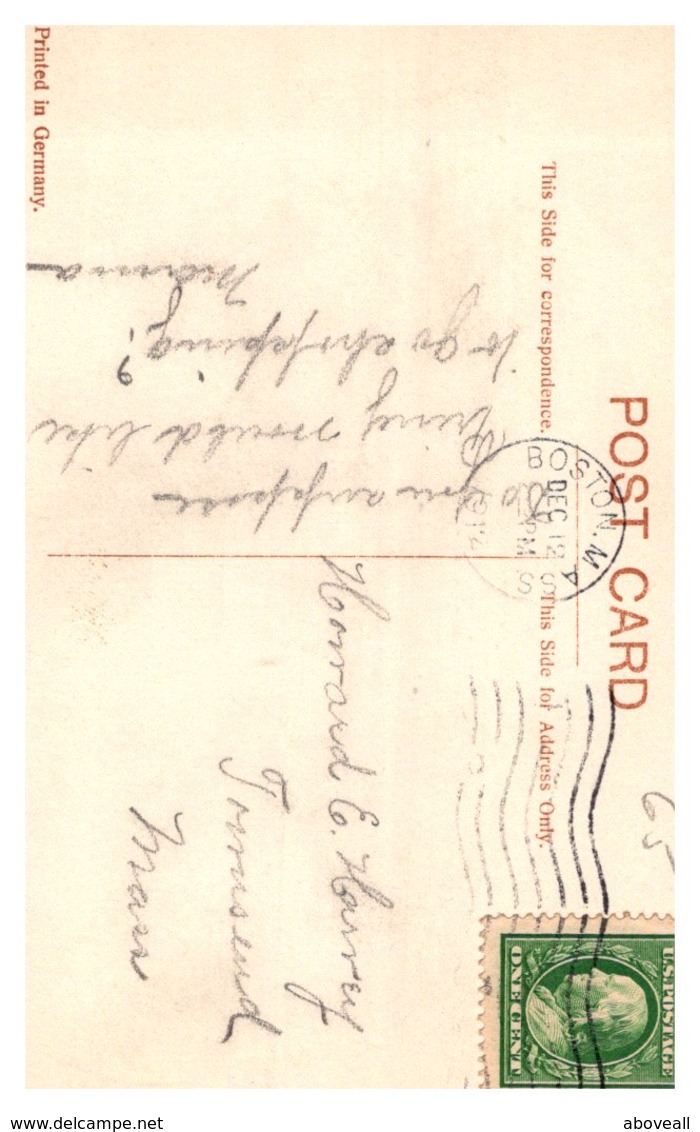 POST CARD
This Side for correspondence.
This Side for Address Only.
Printed in Germany.
65
BOSTON, MASS
DEC 12
PM
U.S. POSTAGE
ONE CENT
Do you suppose
Bing would like
to go shopping?
Mama
Howard E. Harvey
Townsend
Mass
www.delcampe.net
aboveall